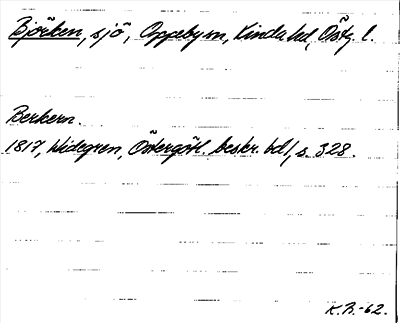 Björken, sjö, Oppeby sn, Kinda hd, Östg. l.
Berkern.
1817, Widegren, Östergötl. beskr. bd 1, s. 328.
K.R.-62.